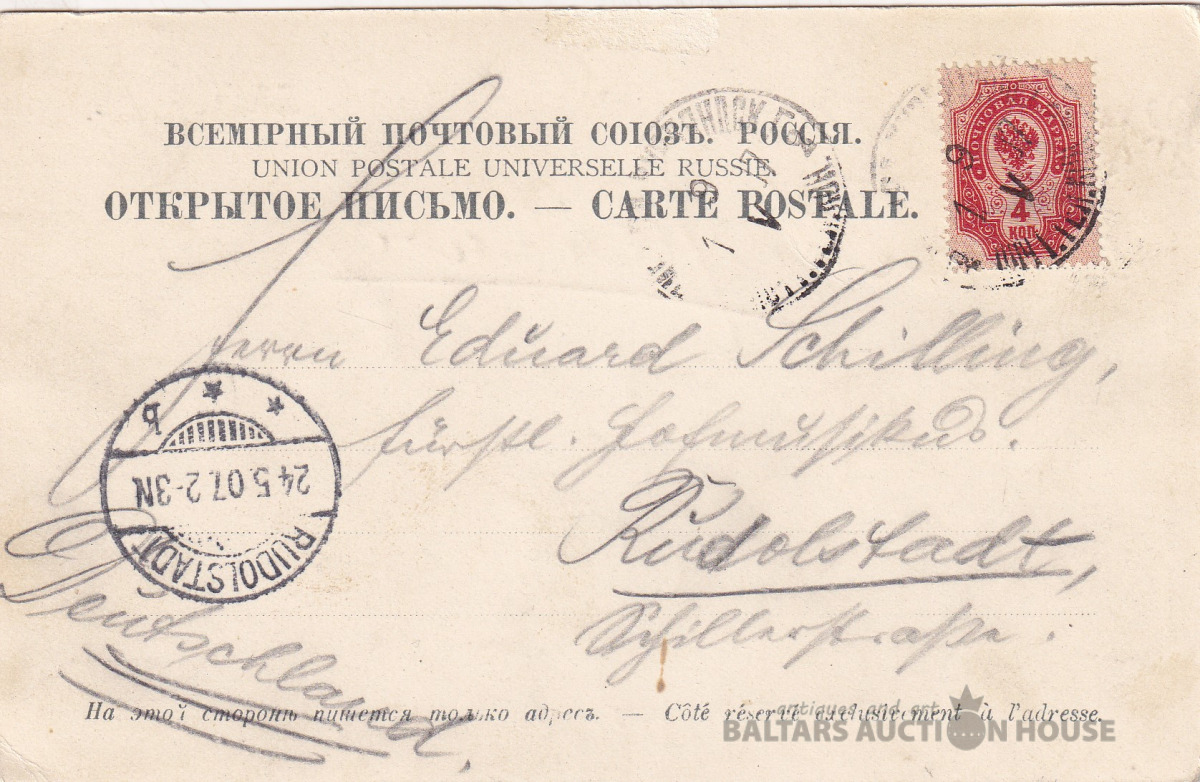 ВСЕМІРНЫЙ ПОЧТОВЫЙ СОЮЗЪ. РОССІЯ.
UNION POSTALE UNIVERSELLE RUSSIE.
ОТКРЫТОЕ ПИСЬМО. — CARTE POSTALE.
ПОЧТОВАЯ МАРКА
4
КОП.
Herrn Eduard Schilling,
fürstl. Hofmusikus.
Rudolstadt,
Schillerstraße.
Deutschland,
RUDOLSTADT
24.5.07.2-3N
b
На этой сторонѣ пишется только адресъ. — Côté réservé exclusivement à l'adresse.
antiques and art
BALTARS AUCTION HOUSE